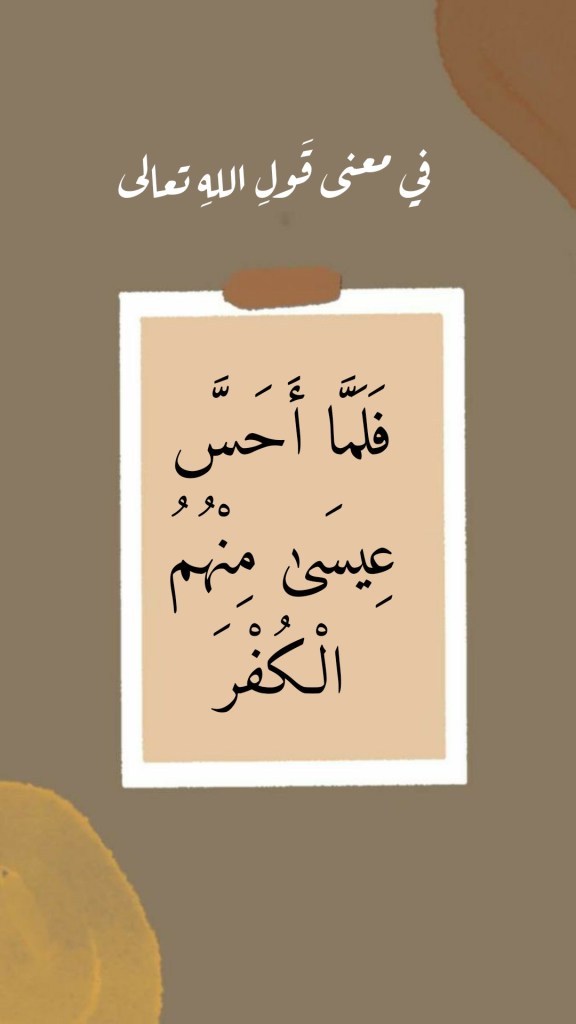 في معنى قَولِ اللهِ تعالى
فَلَمَّا أَحَسَّ
عِيسَىٰ مِنْهُمُ
الْكُفْرَ